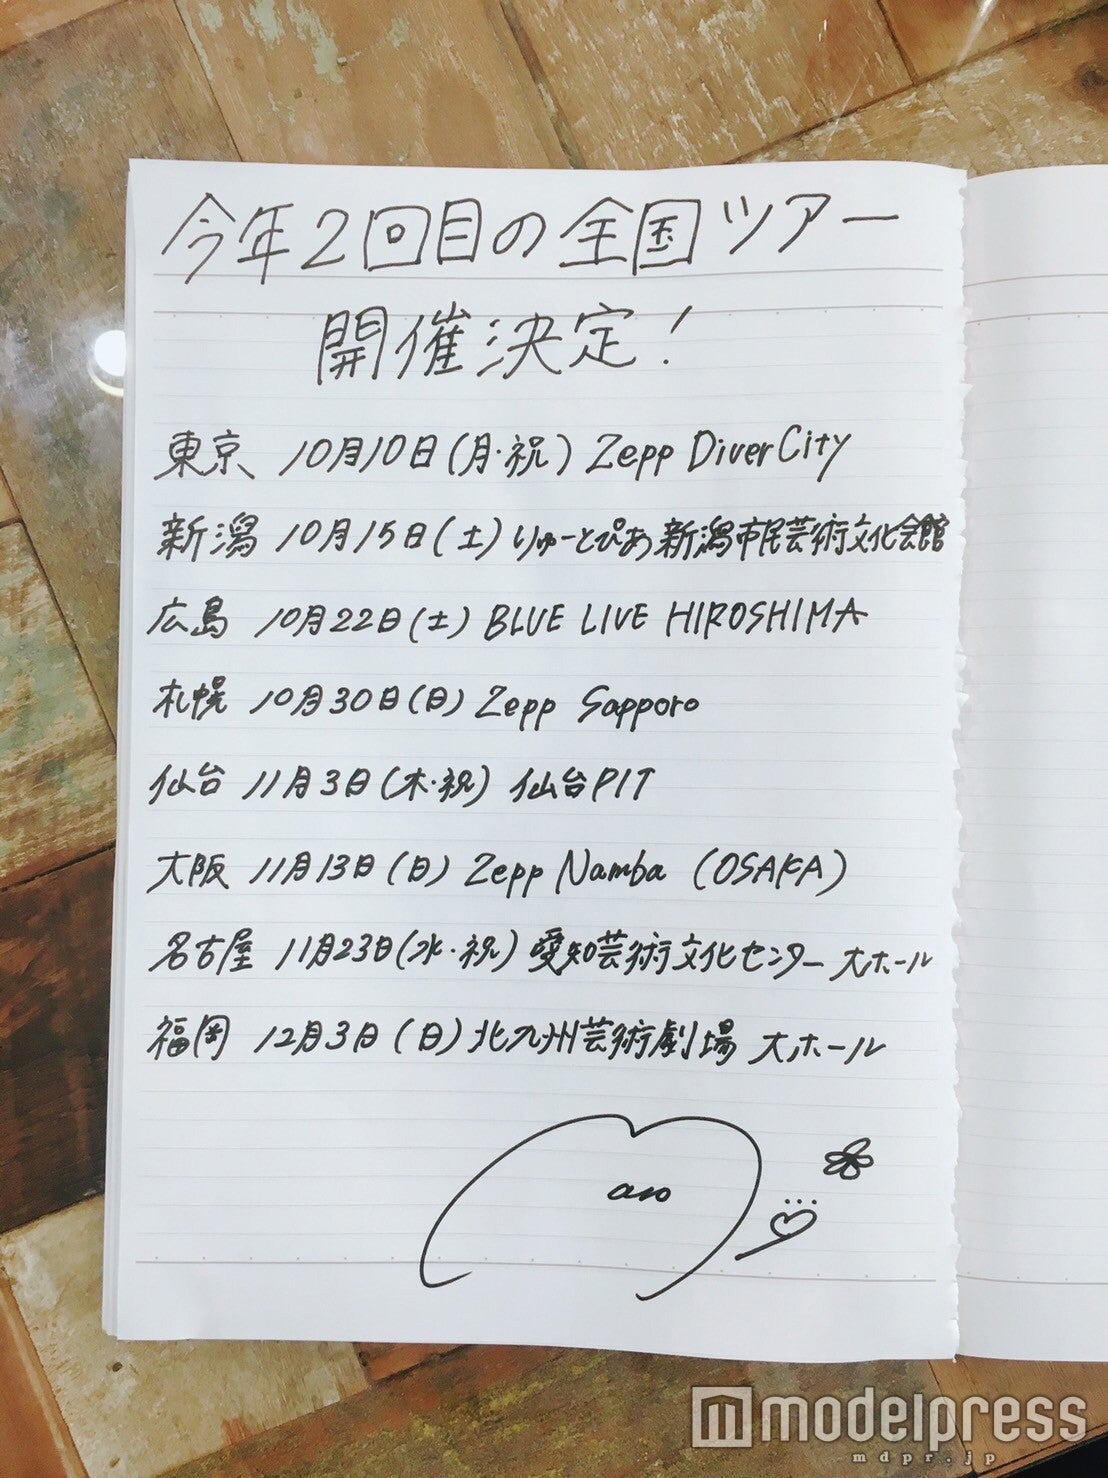 今年2回目の全国ツアー
開催決定!
東京 10月10日(月・祝) Zepp DiverCity
新潟 10月15日(土) りゅーとぴあ新潟市民芸術文化会館
広島 10月22日(土) BLUE LIVE HIROSHIMA
札幌 10月30日(日) Zepp Sapporo
仙台 11月3日(木・祝) 仙台PIT
大阪 11月13日(日) Zepp Namba (OSAKA)
名古屋 11月23日(水・祝) 愛知芸術文化センター 大ホール
福岡 12月3日(日) 北九州芸術劇場 大ホール
modelpress
mdpr.jp